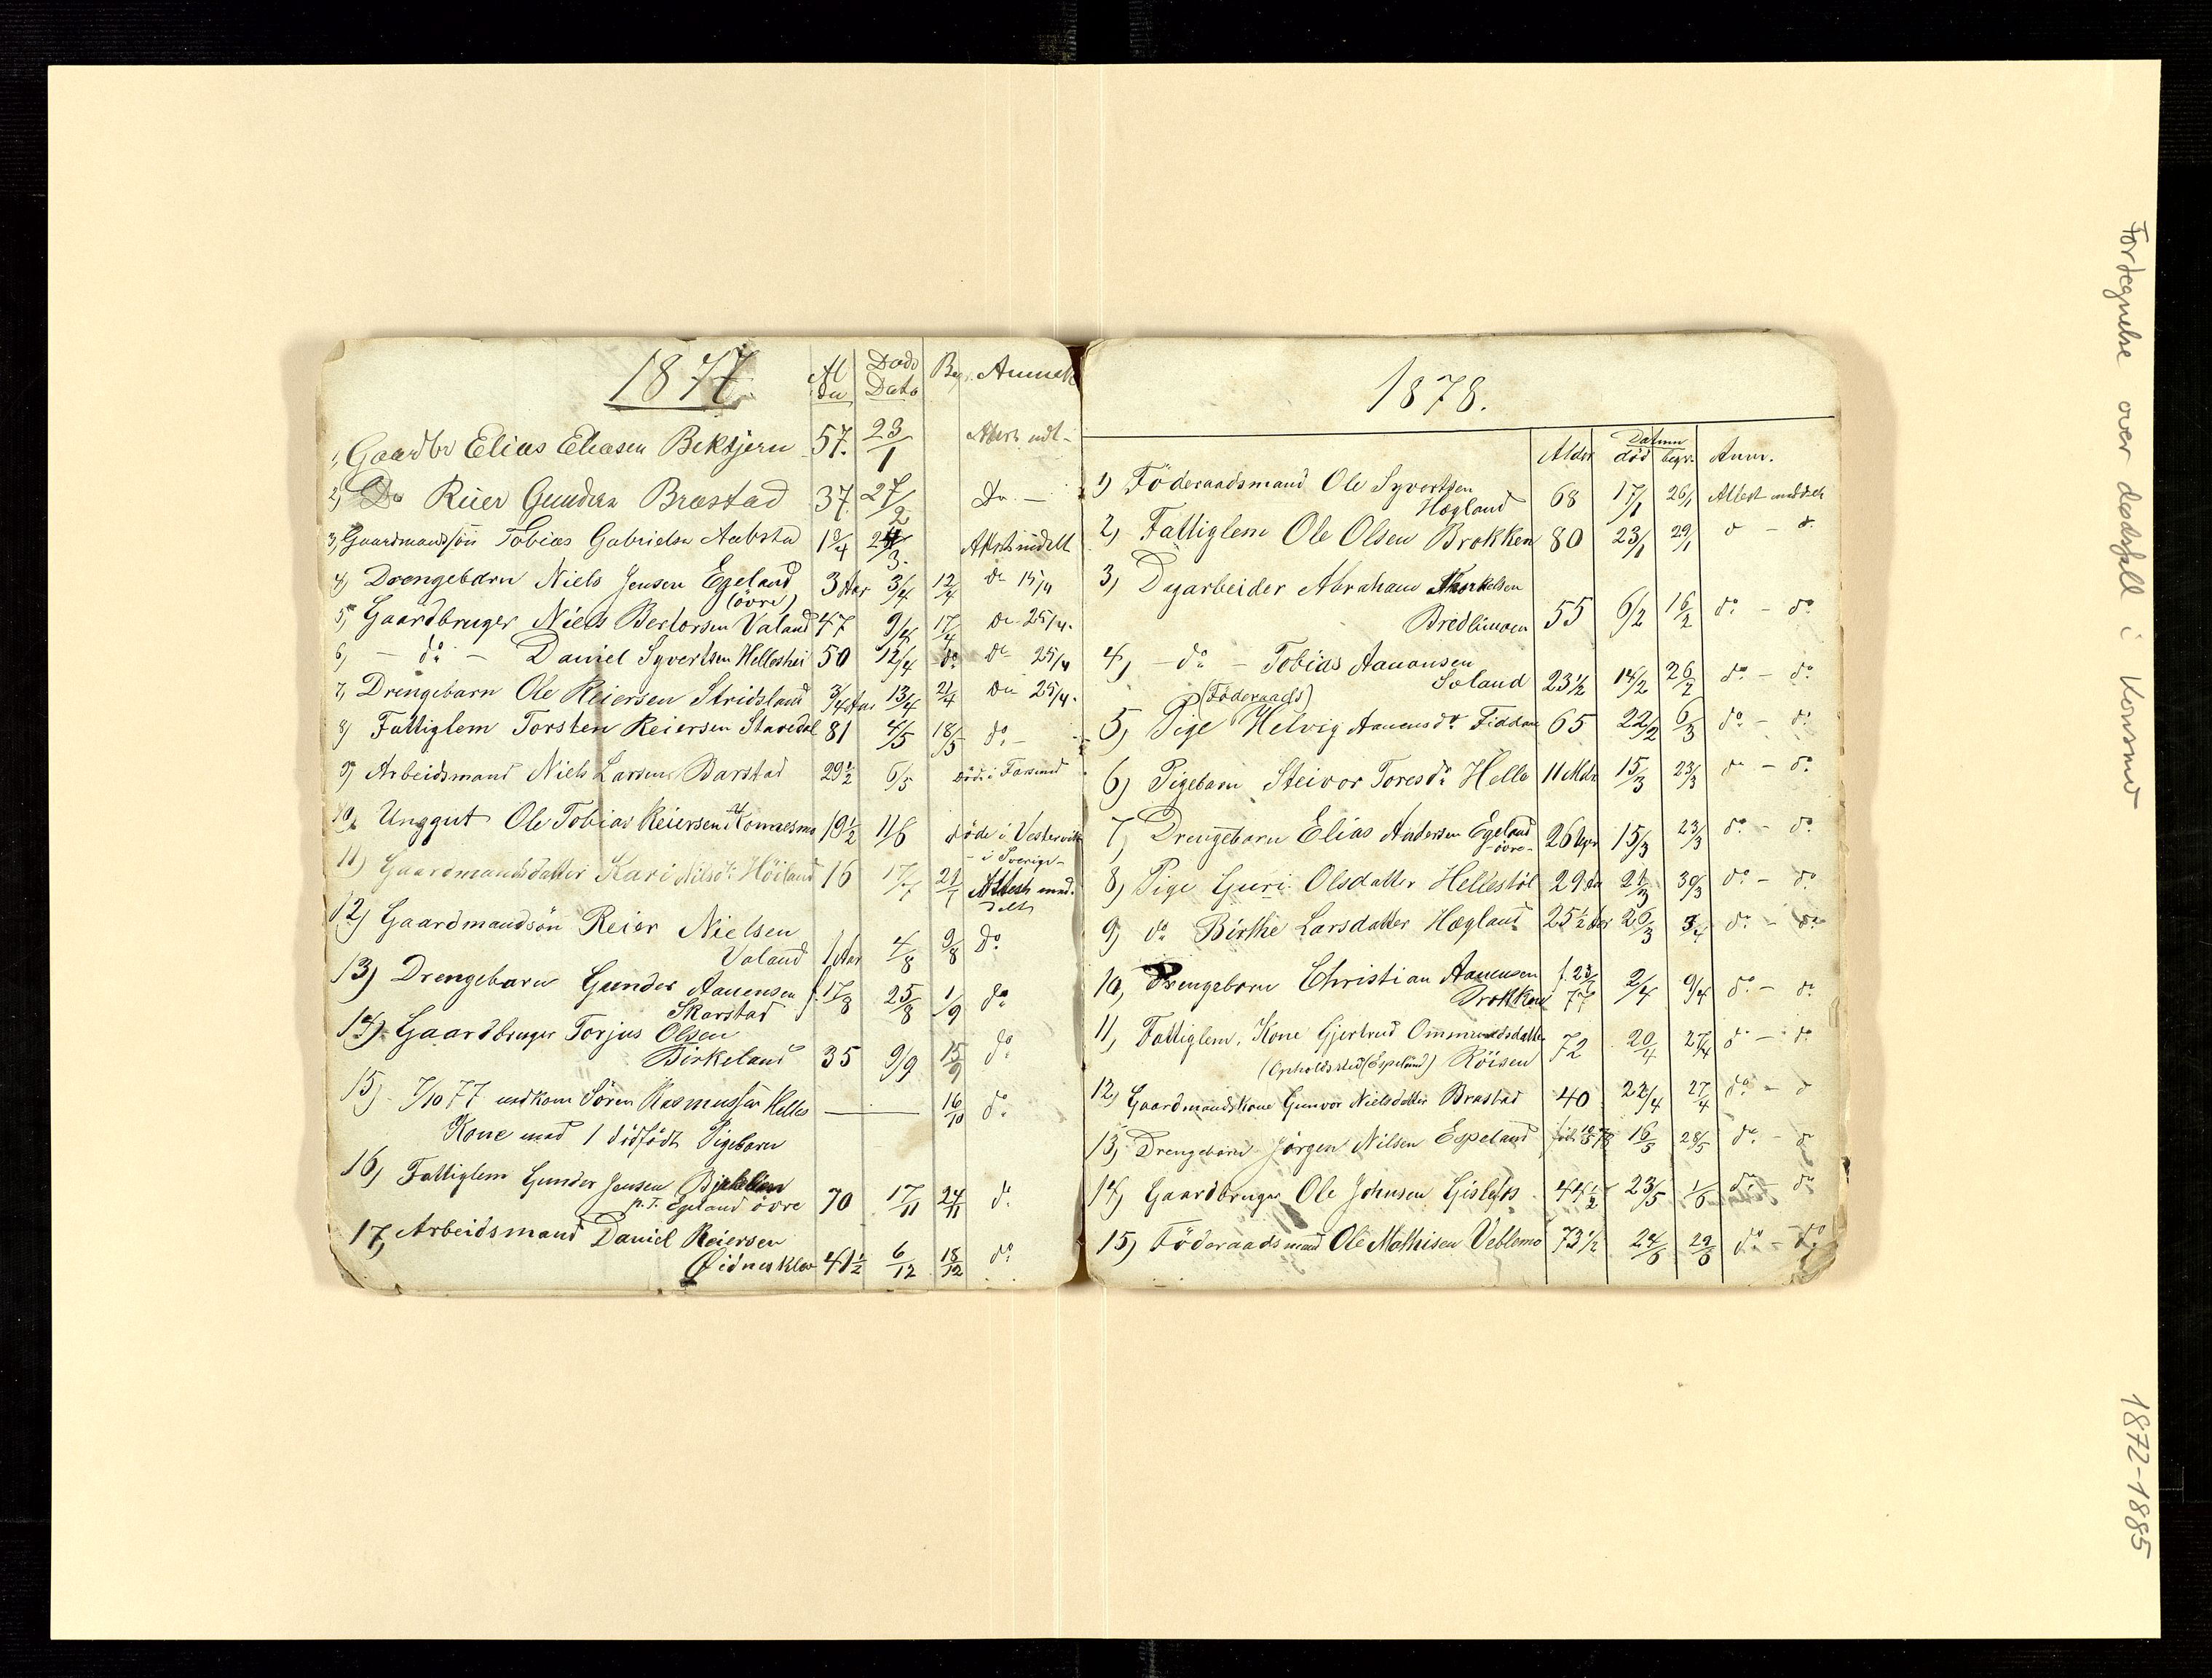 1877
Al
der
Døds
Dato
Beg.
Anmerk
1, Gaardbr Elias Eliasen Bektjern 57. 23/1 Attest udt-
2, Do Reier Gundersen Brastad 37. 27/2 Do. —
3, Gaardmandssön Tobias Gabrielsen Aabstad 1 3/4 24/3. Attest meddelt
4, Drengebarn Niels Jensen Egeland 3 Aar 3/4 12/4 do 15/4
(övre)
5, Gaardbruger Niels Bertorsen Valand 47 9/4 17/4 do 25/4.
6, — do — Daniel Syvertsen Helleshei 50 12/4 do. do 25/4
7, Drengebarn Ole Reiersen Stridsland 3/4 Aar 13/4 21/4 do 25/4.
8, Fattiglem Torsten Reiersen Stavedal 81 4/5 18/5 do. —
9, Arbeidsmand Niels Larsen Barstad 29 1/2 6/5 död i Farsund
10, Unggut Ole Tobias Reiersen 19 1/2 11/6 döde i Vestervik
- i Sverige -
11) Gaardmandsdatter Kari Nilsdr. Höiland 16 17/7 21/7 Attest med-
delt
12) Gaardmandsön Reier Nielsen
Valand 1 Aar 4/8 9/8 Do
13) Drengebarn Gunder Aanensen f. 17/8 25/8 1/9 do
Skarstad
14) Gaardbruger Torjus Olsen
Birkeland 35 9/9 15/9 do
15) 7/10 77 nedkom Sören Rasmussen Helles — 16/10 do.
Kone med 1 dödfödt Pigebarn
16, Fattiglem Gunder Jensen
p. T. Egeland övre 70 17/11 24/11 do
17, Arbeidsmand Daniel Reiersen
Øidnesklev 41 1/2 6/12 18/12 do
1878.
Alder
Datum
död begr.
Anm.
1) Föderaadsmand Ole Syvertsen
Hægland 68 17/1 26/1 Attest meddelt
2, Fattiglem Ole Olsen Brokken 80 23/1 29/1 do — do.
3, Dyarbeider Abraham Thorkelsen
Bredlimoen 55 6/2 16/2 do. — do.
4, — do — Tobias Aanonsen
Soland 23 1/2 14/2 26/2 do — do.
(Föderaads)
5, Pige Helvig Aanensdr Fiddan 65 22/2 6/3 do — do.
6) Pigebarn Steivor Toresdr. Helle 11 Mdr 15/3 23/3 do — do.
7, Drengebarn Elias Andersen Egeland
-övre- 26 Uger 15/3 23/3 do. — do.
8) Pige Guri Olsdatter Hellestöl 29 Aar 21/3 30/3 do. — do.
9, do Birthe Larsdatter Hægland 25 1/2 Aar 26/3 3/4 do. — do.
10, Drengebarn Christian Aanensen
Brokken f. 23/7 77 2/4 9/4 do. — do.
11, Fattiglem. Kone Gjertrud Ommundsdatter 72 20/4 27/4 do — do
(Opholdssted (Espeland) Röisen
12, Gaardmandskone Gunvor Nielsdatter Brastad 40 22/4 27/4 do. — do
13, Drengebarn Jörgen Nilsen Espeland född 10/5 78 16/5 28/5 do. — do
14) Gaardbruger Ole Johnsen Gislefos 44 1/2 23/5 1/6 do. — do
15) Föderaadsmand Ole Mathisen Veblemo 73 1/2 24/6 29/6 do. — do
Fortegnelse over dødsfall i Konsmo
1872-1885